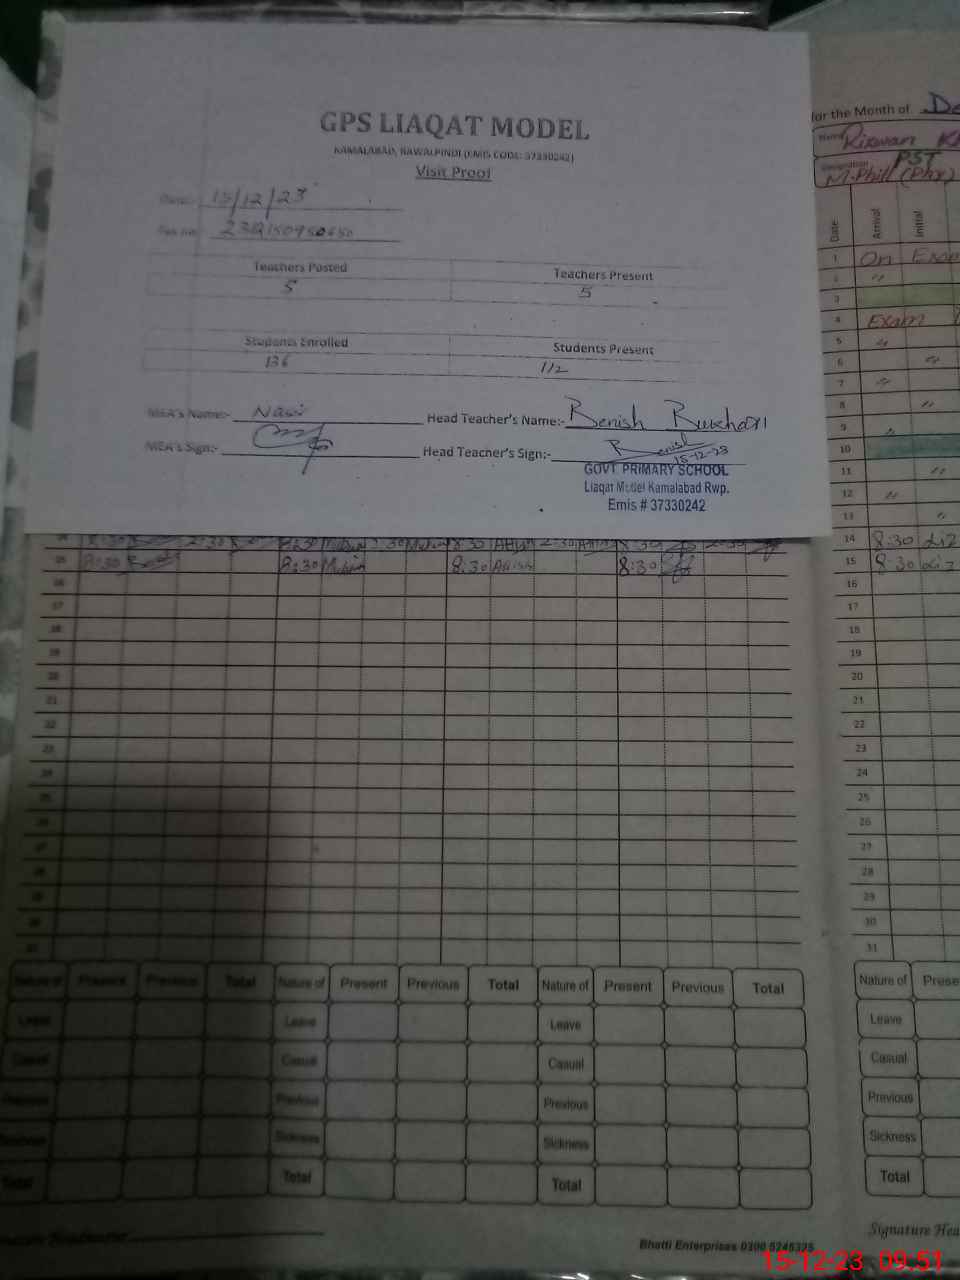 GPS LIAQAT MODEL
KAMALABAD, RAWALPINDI (EMIS CODE: 37330242)
Visit Proof
Date:- 15/12/23
Teachers Posted Teachers Present
5 5
Students Enrolled Students Present
136 112
MEA's Name:- Nasir Head Teacher's Name:- Benish Bukhari
MEA's Sign:- Head Teacher's Sign:- Benish
15-12-23
GOVT. PRIMARY SCHOOL
Liaqat Model Kamalabad Rwp.
Emis # 37330242
for the Month of De
Name Rizwan Kh
Designation PST
M-Phill (Phy)
Date Arrival Initial
1 On Exam
2 "
3
4 Exam
5 "
6 "
7 "
8 "
9 "
10
11 "
12 "
13 "
14 8:30
15 8:30
16
17
18
19
20
21
22
23
24
25
26
27
28
29
30
31
8:30 2:30 8:30 2:30 8:30 2:30 8:30 2:30
15 8:30 8:30 8:30 8:30
16
17
18
19
20
21
22
23
24
25
26
27
28
29
30
31
Nature of Present Previous Total Nature of Present Previous Total Nature of Present Previous Total Nature of Prese
Leave Leave Leave Leave
Casual Casual Casual Casual
Previous Previous Previous Previous
Sickness Sickness Sickness Sickness
Total Total Total Total
Signature Hea
Bhatti Enterprises 0300 5246325
15-12-23 09:51